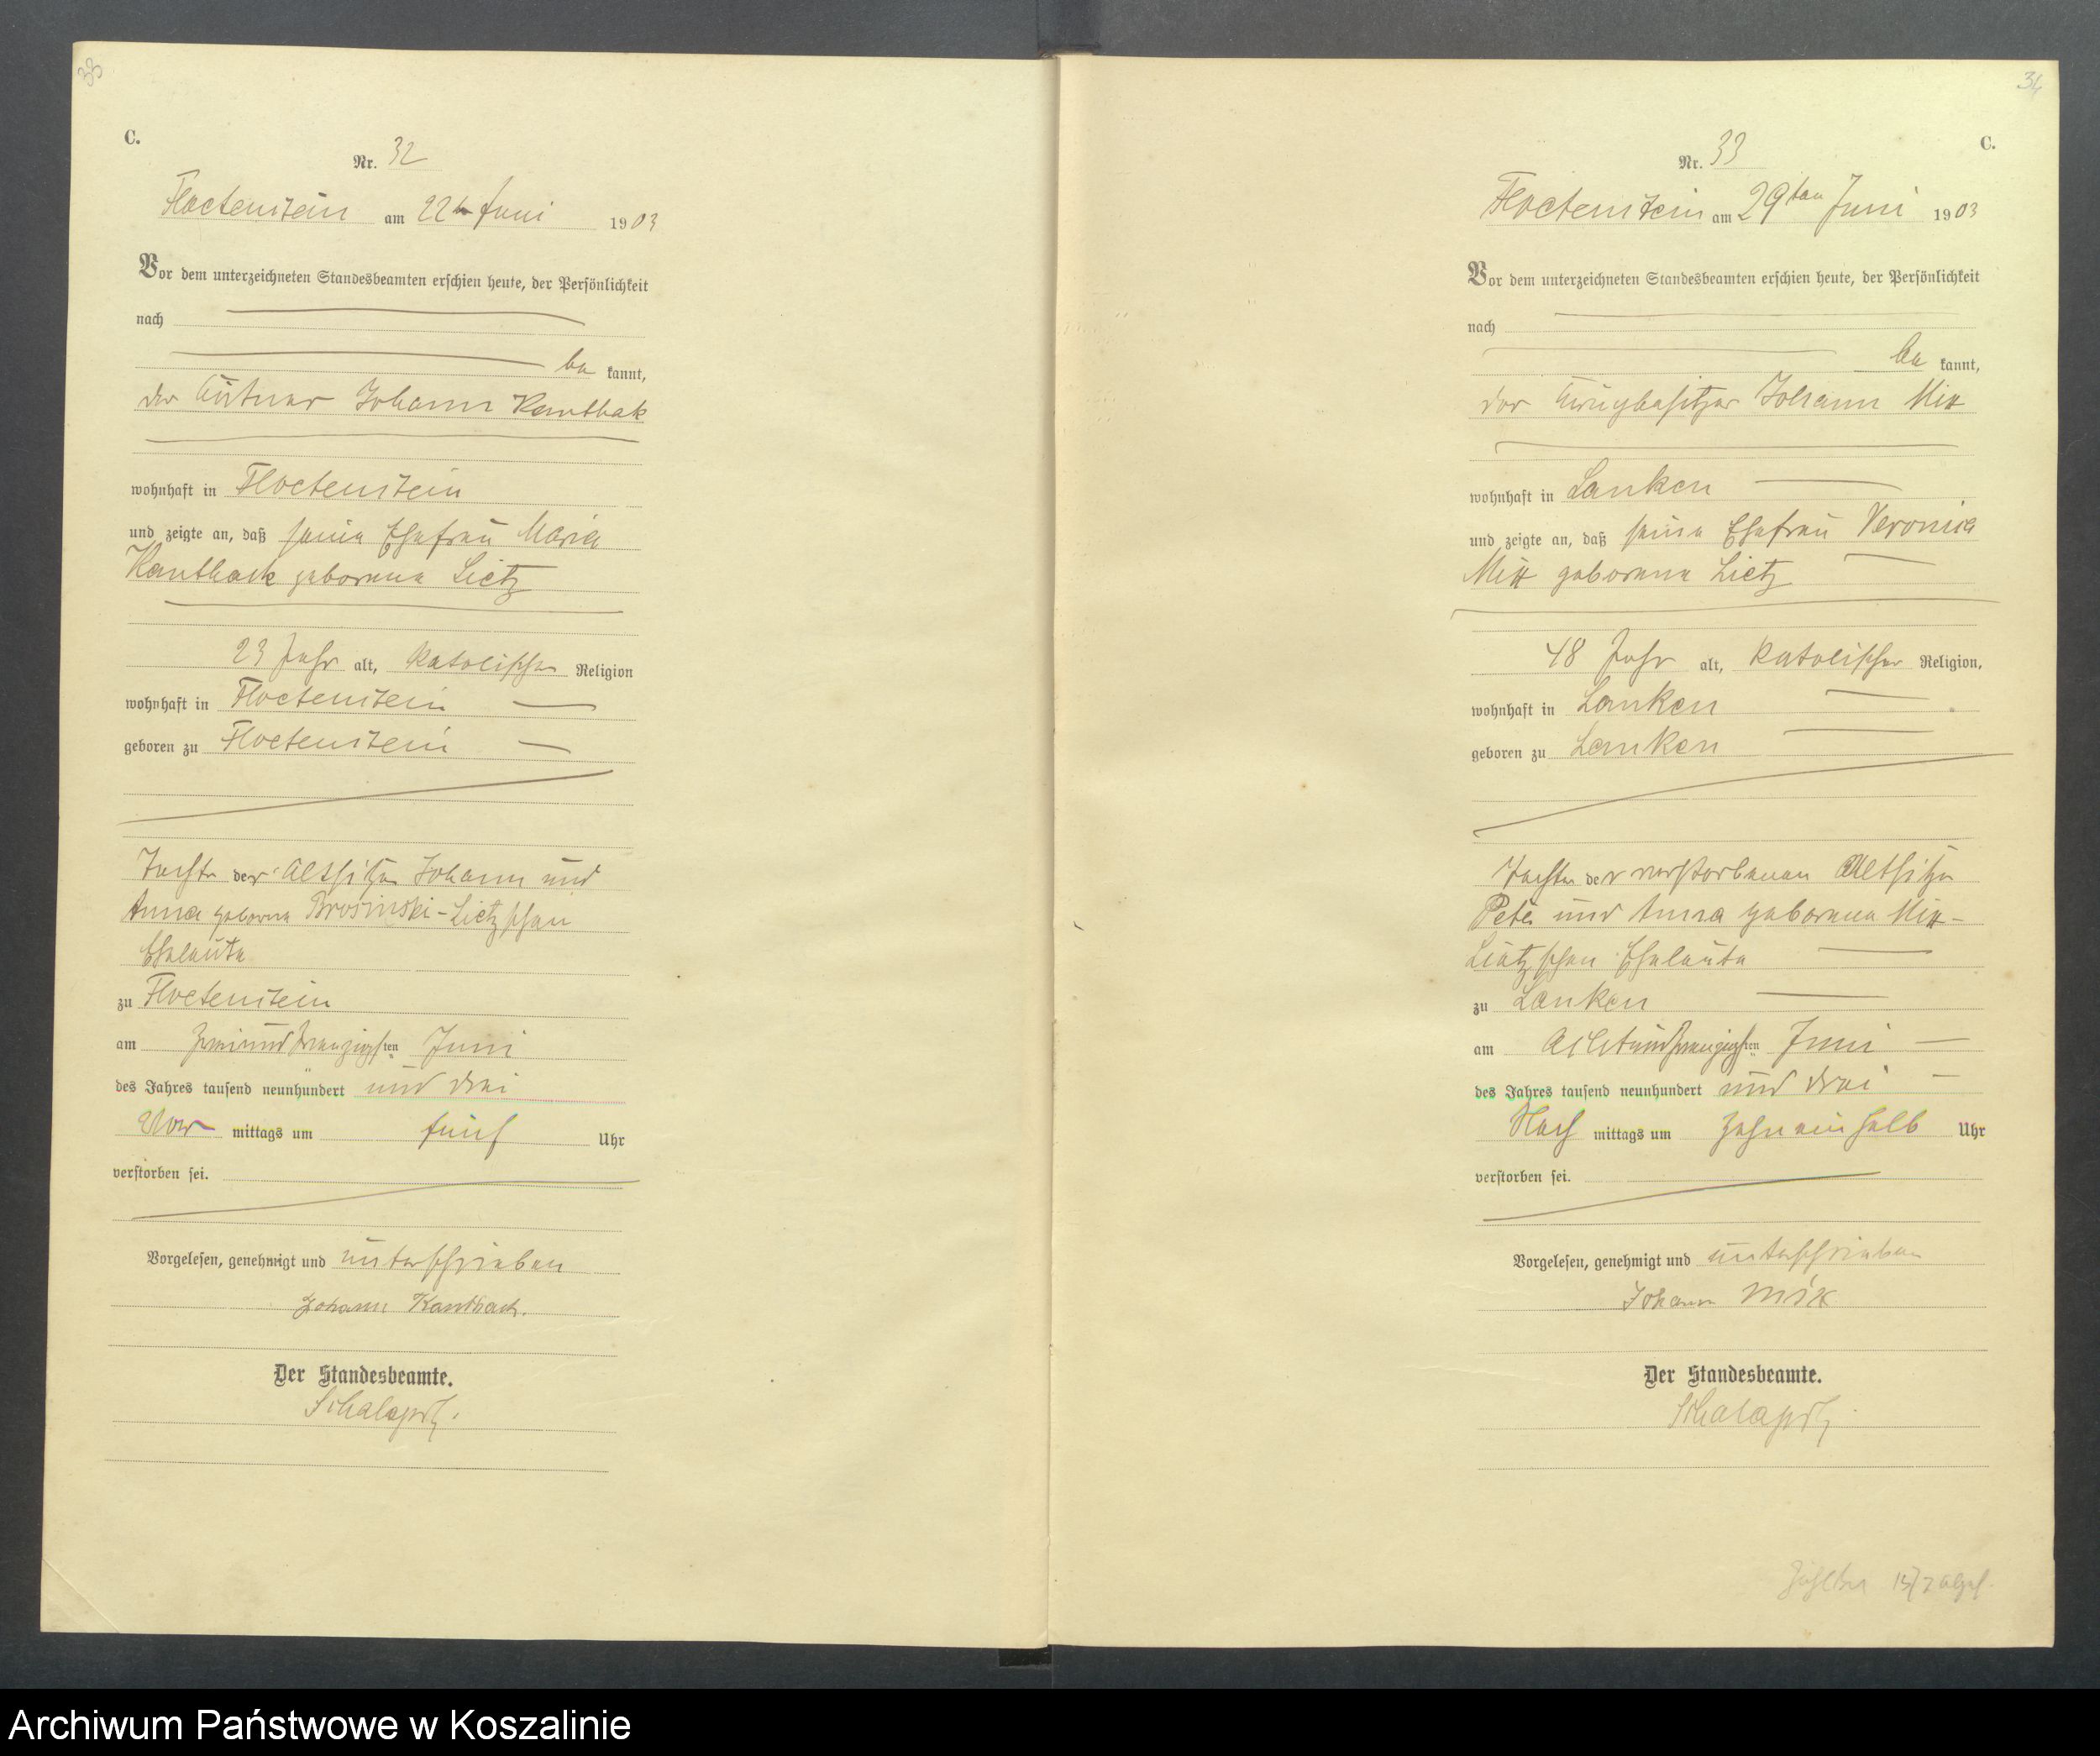 33
C.
Nr. 32
Floetenstein am 22ten Juni 1903
Vor dem unterzeichneten Standesbeamten erschien heute, der Persönlichkeit
nach
be kannt,
der Johann Kanthak
wohnhaft in Floetenstein
und zeigte an, daß seine Ehefrau Maria
Kanthack geborene Lietz
23 Jahr alt, katolischer Religion
wohnhaft in Floetenstein
geboren zu Floetenstein
Tochter der Altsitzer Johann und
Anna geborene Brosinski-Lietzschen
Eheleute
zu Floetenstein
am zweiundzwanzigsten Juni
des Jahres tausend neunhundert und drei
Vor mittags um fünf Uhr
verstorben sei.
Vorgelesen, genehmigt und unterschrieben
Johann Kanthack.
Der Standesbeamte.
34
C.
Nr. 33
Floetenstein am 29ten Juni 1903
Vor dem unterzeichneten Standesbeamten erschien heute, der Persönlichkeit
nach
be kannt,
der Johann Mix
wohnhaft in Lanken
und zeigte an, daß seine Ehefrau Veronica
Mix geborene Lietz
48 Jahr alt, katolischer Religion,
wohnhaft in Lanken
geboren zu Lanken
Tochter der verstorbenen Altsitzer
Peter und Anna geborene Mix-
Lietzschen Eheleute
zu Lanken
am achtundzwanzigsten Juni
des Jahres tausend neunhundert und drei
Nach mittags um zehneinhalb Uhr
verstorben sei.
Vorgelesen, genehmigt und unterschrieben
Johann Mix
Der Standesbeamte.
Archiwum Państwowe w Koszalinie